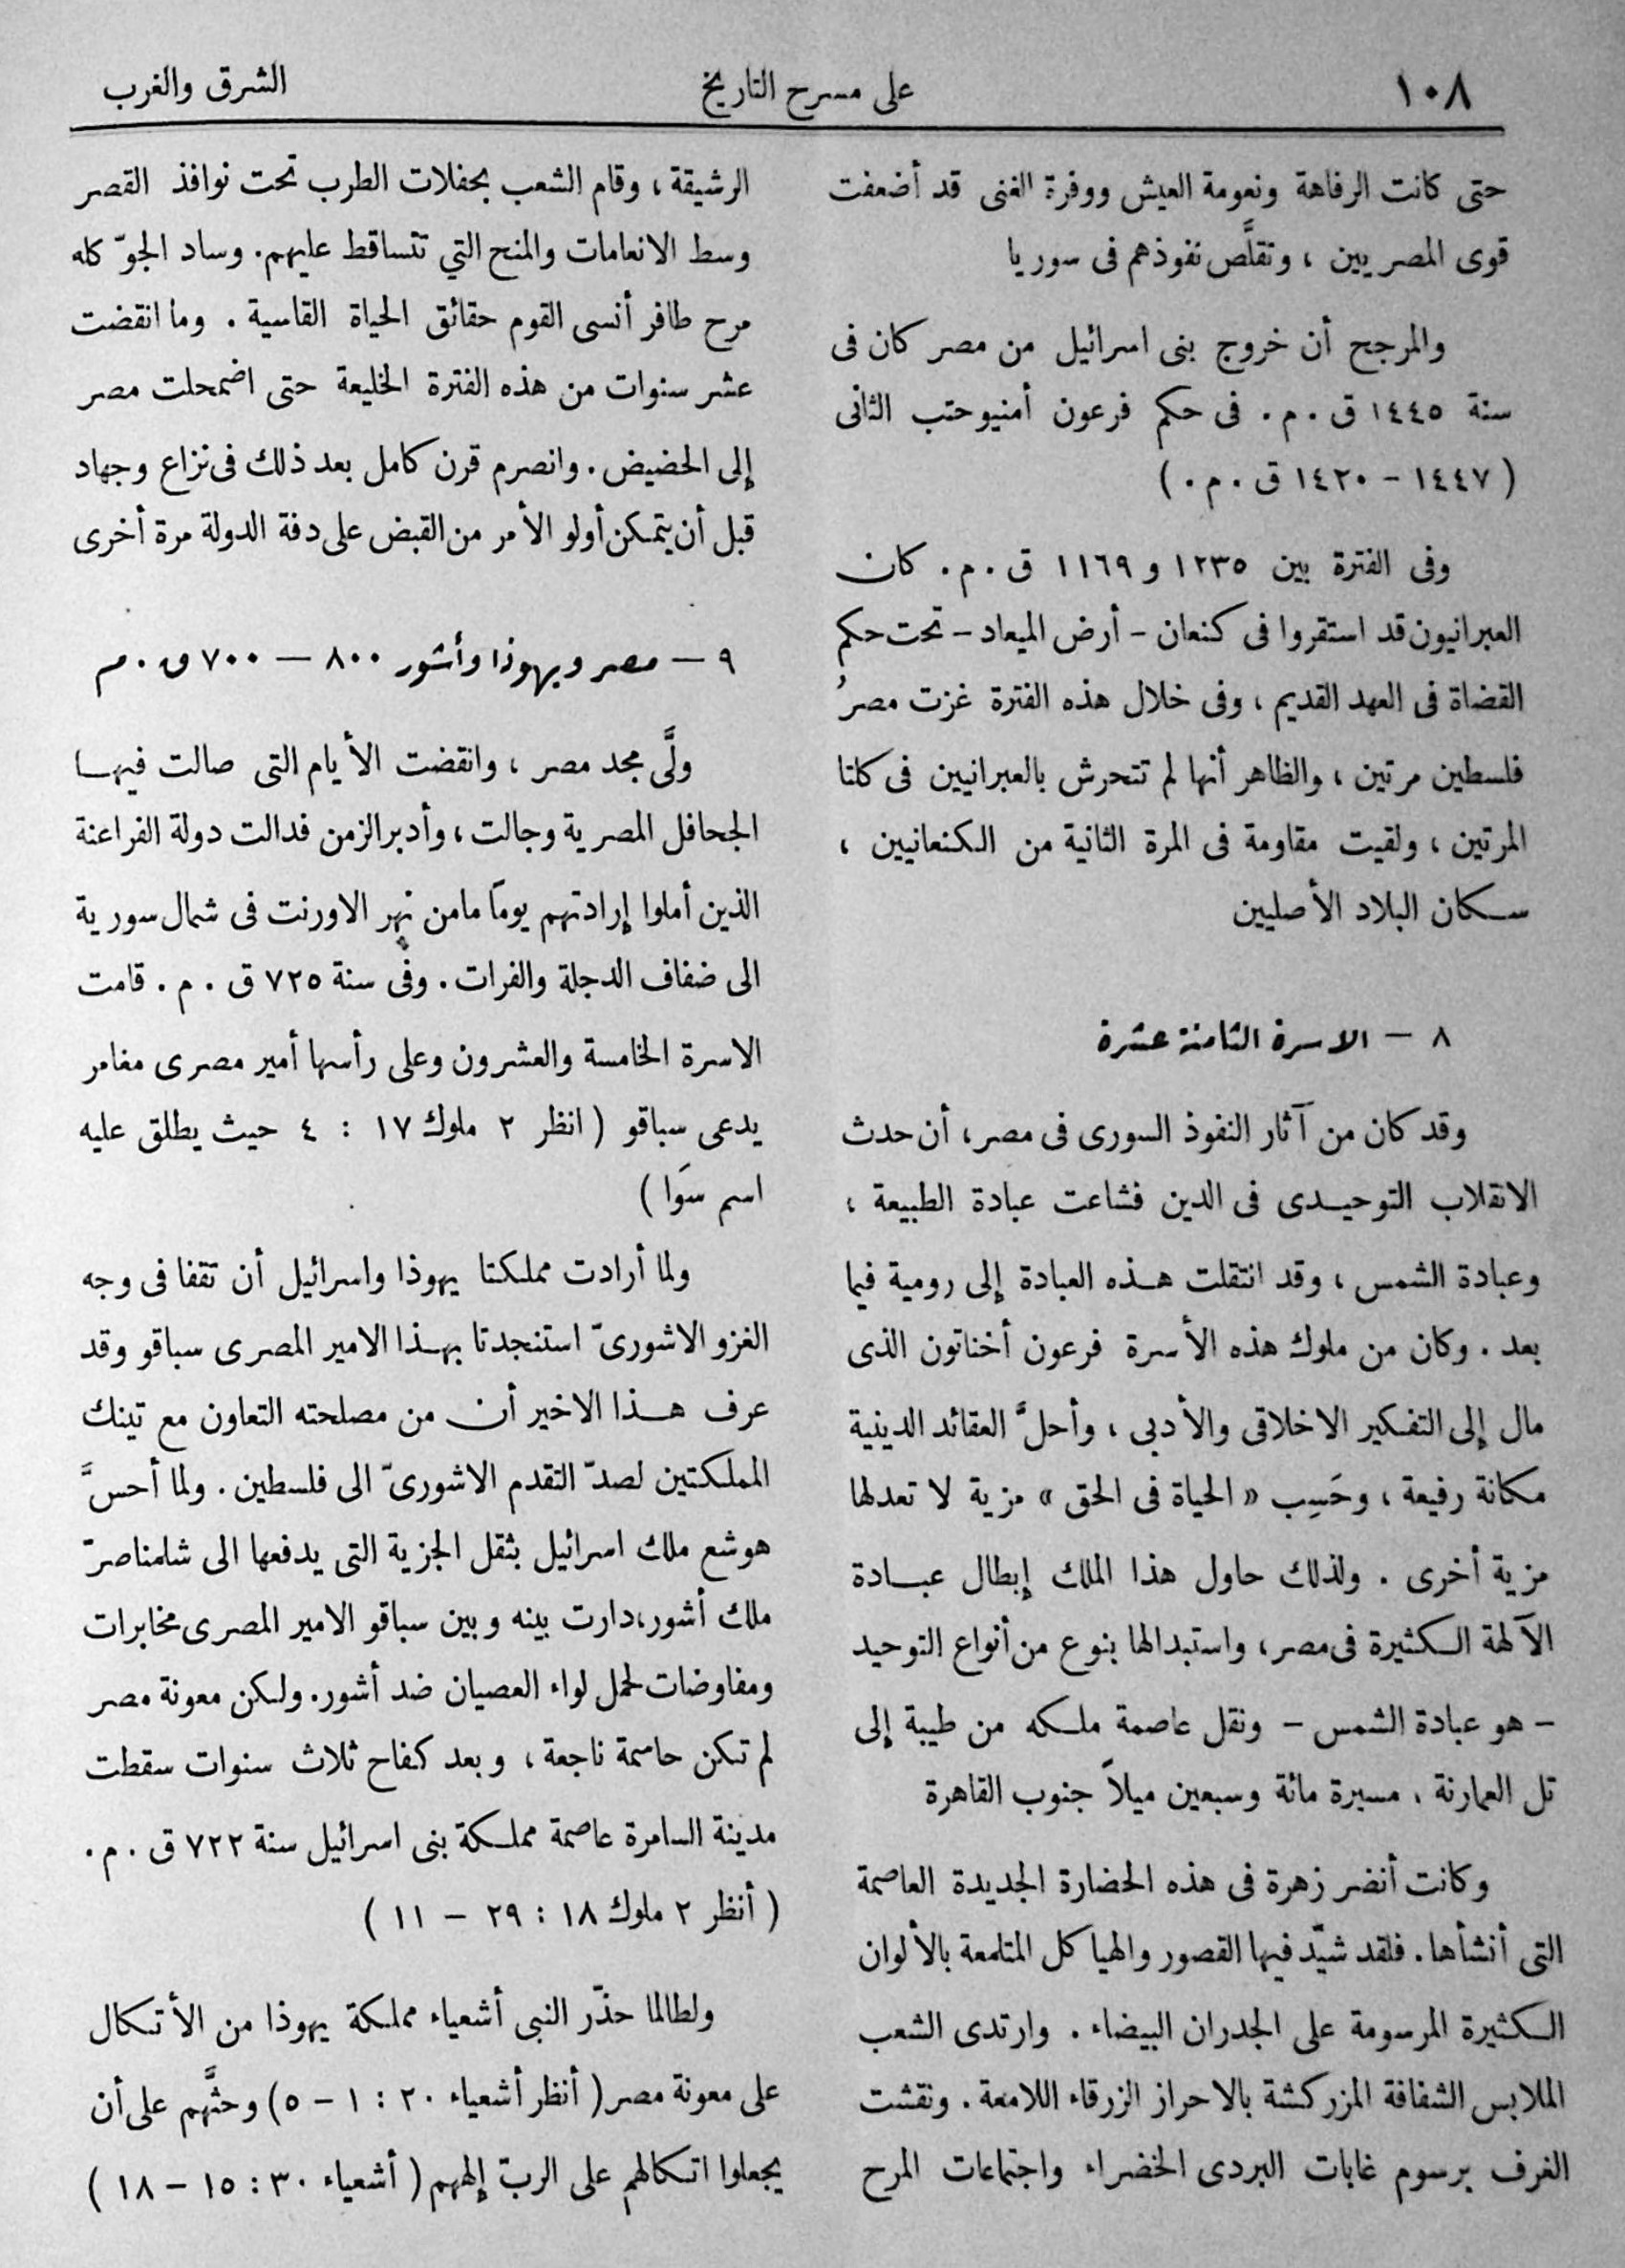 ١٠٨
على مسرح التاريخ
الشرق والغرب
حتى كانت الرفاهة ونعومة العيش ووفرة الغنى قد أضعفت
قوى المصريين ، وتقلَّص نفوذهم فى سوريا
والمرجح أن خروج بنى اسرائيل من مصر كان فى
سنة ١٤٤٥ ق . م . فى حكم فرعون أمنيوحتب الثانى
( ١٤٤٧ - ١٤٢٠ ق . م . )
وفى الفترة بين ١٢٣٥ و ١١٦٩ ق . م . كان
العبرانيون قد استقروا فى كنعان - أرض الميعاد - تحت حكم
القضاة فى العهد القديم ، وفى خلال هذه الفترة غزت مصرُ
فلسطين مرتين ، والظاهر أنها لم تتحرش بالعبرانيين فى كلتا
المرتين ، ولقيت مقاومة فى المرة الثانية من الكنعانيين ،
سكان البلاد الأصليين
٨ - الاسرة الثامنة عشرة
وقد كان من آثار النفوذ السورى فى مصر ، أن حدث
الانقلاب التوحيدى فى الدين فشاعت عبادة الطبيعة ،
وعبادة الشمس ، وقد انتقلت هذه العبادة إلى رومية فيما
بعد . وكان من ملوك هذه الأسرة فرعون أخناتون الذى
مال إلى التفكير الاخلاقى والأدبى ، وأحلَّ العقائد الدينية
مكانة رفيعة ، وحَسِب « الحياة فى الحق » مزية لا تعدلها
مزية أخرى . ولذلك حاول هذا الملك إبطال عبادة
الآلهة الكثيرة فى مصر ، واستبدالها بنوع من أنواع التوحيد
- هو عبادة الشمس - ونقل عاصمة ملكه من طيبة إلى
تل العمارنة ، مسيرة مائة وسبعين ميلاً جنوب القاهرة
وكانت أنضر زهرة فى هذه الحضارة الجديدة العاصمة
التى أنشأها . فلقد شيّد فيها القصور والهياكل المتلمعة بالألوان
الكثيرة المرسومة على الجدران البيضاء . وارتدى الشعب
الملابس الشفافة المزركشة بالاحراز الزرقاء اللامعة . ونقشت
الغرف برسوم غابات البردى الخضراء واجتماعات المرح
الرشيقة ، وقام الشعب بحفلات الطرب تحت نوافذ القصر
وسط الانعامات والمنح التي تتساقط عليهم . وساد الجوّ كله
مرح طافر أنسى القوم حقائق الحياة القاسية . وما انقضت
عشر سنوات من هذه الفترة الخليعة حتى اضمحلت مصر
إلى الحضيض . وانصرم قرن كامل بعد ذلك فى نزاع وجهاد
قبل أن يتمكن أولو الأمر من القبض على دفة الدولة مرة أخرى
٩ - مصر ويهوذا وأشور ٨٠٠ - ٧٠٠ ق . م
ولَّى مجد مصر ، وانقضت الأيام التى صالت فيها
الجحافل المصرية وجالت ، وأدبر الزمن فدالت دولة الفراعنة
الذين أملوا إرادتهم يوماً مامن نهر الاورنت فى شمال سورية
الى ضفاف الدجلة والفرات . وفى سنة ٧٢٥ ق . م . قامت
الاسرة الخامسة والعشرون وعلى رأسها أمير مصرى مغامر
يدعى سباقو ( انظر ٢ ملوك ١٧ : ٤ حيث يطلق عليه
اسم سَوَا )
ولما أرادت مملكتا يهوذا واسرائيل أن تقفا فى وجه
الغزو الاشورىّ استنجدتا بهذا الامير المصرى سباقو وقد
عرف هذا الاخير أن من مصلحته التعاون مع تينك
المملكتين لصدّ التقدم الاشورىّ الى فلسطين . ولما أحسَّ
هوشع ملك اسرائيل بثقل الجزية التى يدفعها الى شلمناصرّ
ملك أشور ، دارت بينه وبين سباقو الامير المصرى مخابرات
ومفاوضات لحمل لواء العصيان ضد أشور . ولكن معونة مصر
لم تكن حاسمة ناجعة ، وبعد كفاح ثلاث سنوات سقطت
مدينة السامرة عاصمة مملكة بنى اسرائيل سنة ٧٢٢ ق . م .
( أنظر ٢ ملوك ١٨ : ٢٩ - ١١ )
ولطالما حذّر النبى أشعياء مملكة يهوذا من الأتكال
على معونة مصر ( أنظر أشعياء ٢٠ : ١ - ٥ ) وحثَّهم على أن
يجعلوا اتكالهم على الربّ إلههم ( أشعياء ٣٠ : ١٥ - ١٨ )